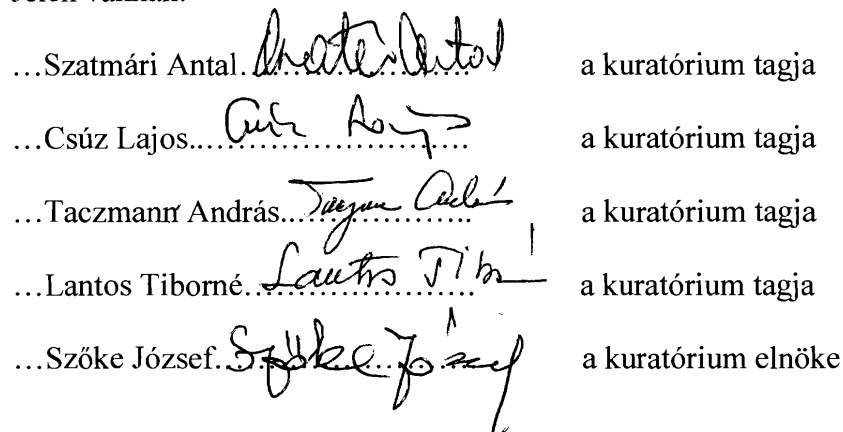 …Szatmári Antal. Szatmári Antal a kuratórium tagja
…Csúz Lajos... Csúz Lajos a kuratórium tagja
…Taczmann András... András a kuratórium tagja
…Lantos Tiborné... Lantos Tibné a kuratórium tagja
…Szőke József... Szőke József a kuratórium elnöke